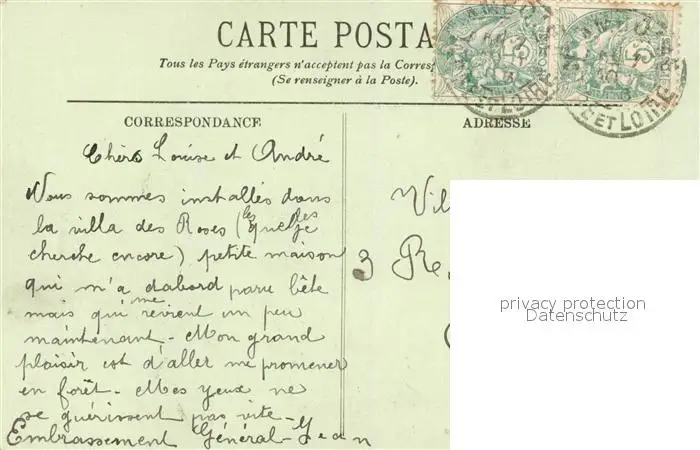 CARTE POSTA
Tous les Pays étrangers n'acceptent pas la Corresp
(Se renseigner à la Poste).
CORRESPONDANCE
Chers Louise et André
Nous sommes installés dans
la villa des Roses (les quelles je
cherche encore) petite maison
qui m'a dabord parue bête
mais qui me revient un peu
maintenant - Mon grand
plaisir est d'aller me promener
en forêt - Mes yeux ne
se guérissent pas vite -
Embrassement Général - Jean
ADRESSE
Vil
3 R
ET LOIRE
ET LOIRE
privacy protection
Datenschutz